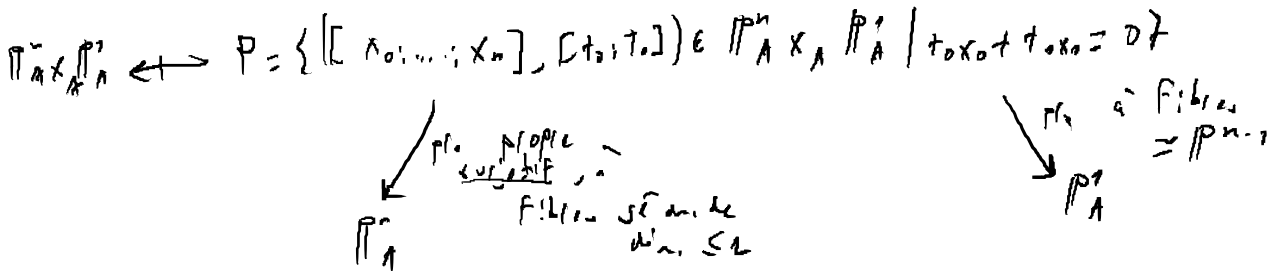 ℙⁿ_A ×_A ℙ¹_A ↔ P = {([x₀:...:xₙ], [t₀:t₀]) ∈ ℙⁿ_A ×_A ℙ¹_A | t₀x₀ + t₀x₀ = 0}
pr₁ propre surjectif, à
fibres géom. de
dim. ≤ 1
ℙⁿ_A
pr₂ à fibres
≃ ℙⁿ⁻¹
ℙ¹_A